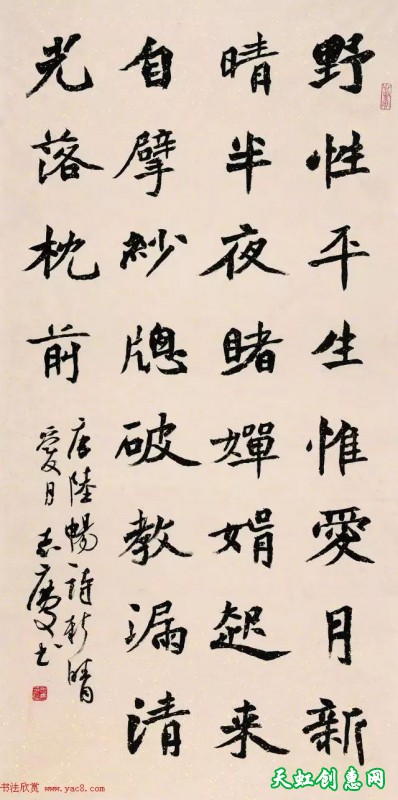 野性平生惟愛月新
晴半夜睹嬋娟起来
自擘紗窗破教漏清
光落枕前
唐陸暢詩新晴
愛月 志慶书
书法欣赏 www.yac8.com
天虹创惠网